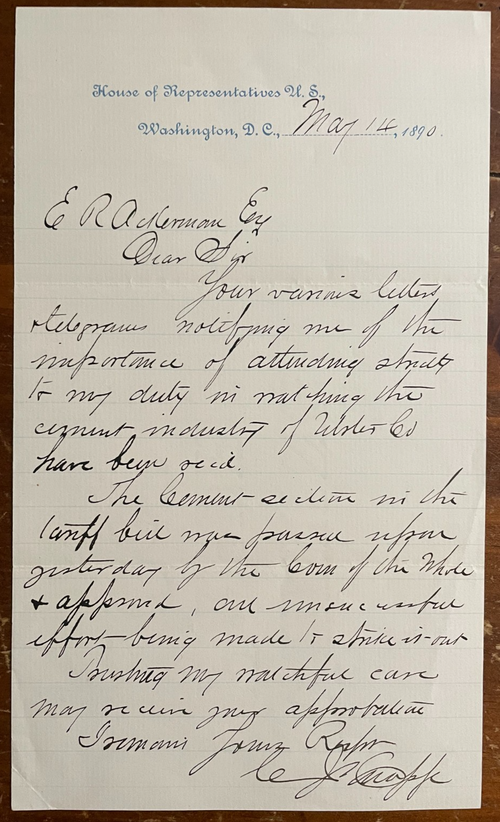 House of Representatives U. S.,
Washington, D. C., May 14, 1890.
E R Ackerman Esq
Dear Sir
Your various letters
+ telegrams notifying me of the
importance of attending strictly
to my duty in watching the
cement industry of Ulster Co
have been recd.
The Cement section in the
tariff bill was passed upon
yesterday by the Com of the Whole
+ approved, an unsuccessful
effort being made to strike it out
Trusting my watchful care
may receive your approbation
I remain Yours Respt
C J Knapp